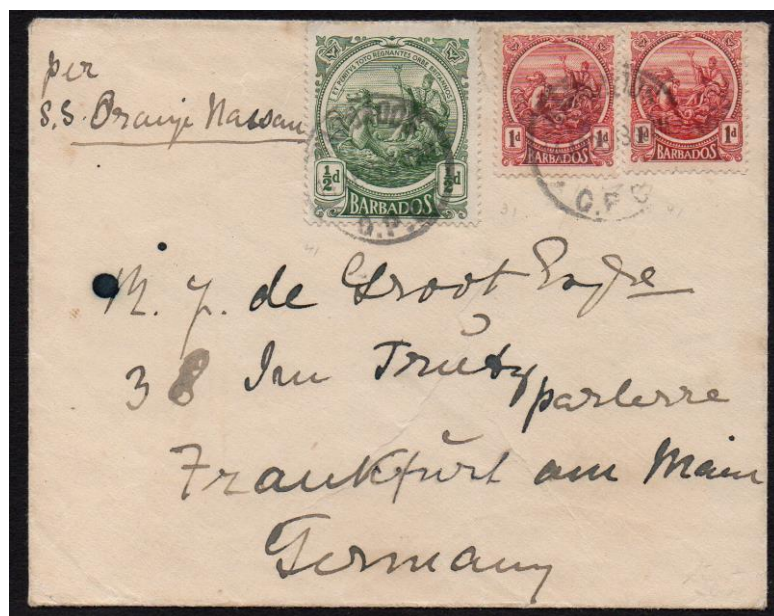 per
S.S. Oranje Nassau
ET PENITUS TOTO REGNANTES ORBE BRITANNOS
½d ½d
BARBADOS
1d 1d
BARBADOS
1d 1d
BARBADOS
G.P.O.
M. J. de Groot Esqre
38 Im Trutz
parterre
Frankfurt am Main
Germany